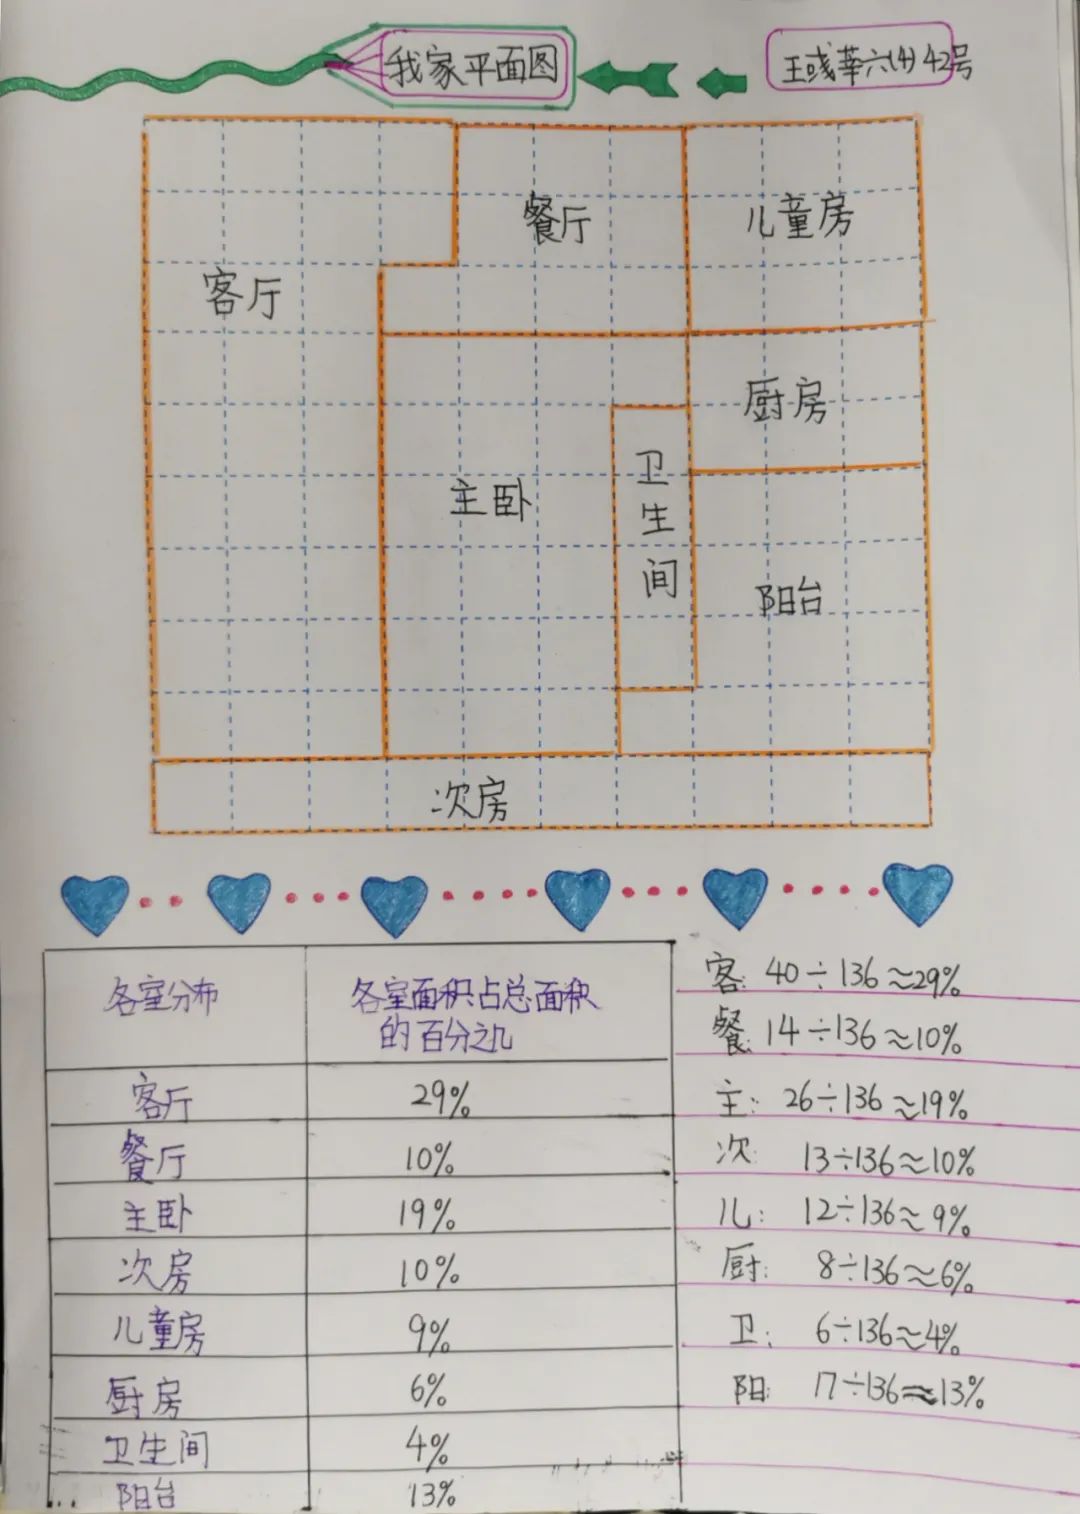 我家平面图
王彧華六(4)42号
餐厅
儿童房
客厅
厨房
主卧
卫生间
阳台
次房
各室分布 各室面积占总面积的百分之几
客厅 29%
餐厅 10%
主卧 19%
次房 10%
儿童房 9%
厨房 6%
卫生间 4%
阳台 13%
客: 40÷136≈29%
餐: 14÷136≈10%
主: 26÷136≈19%
次: 13÷136≈10%
儿: 12÷136≈9%
厨: 8÷136≈6%
卫: 6÷136≈4%
阳: 17÷136≈13%